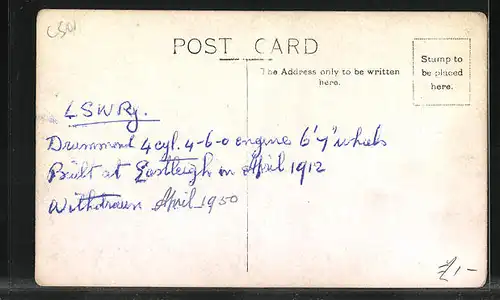 C501
POST CARD
The Address only to be written
here.
Stamp to
be placed
here.
LSWRy.
Drummond 4 cyl. 4-6-0 engine 6'7" wheels
Built at Eastleigh in April 1912
Withdrawn April 1950
£1-